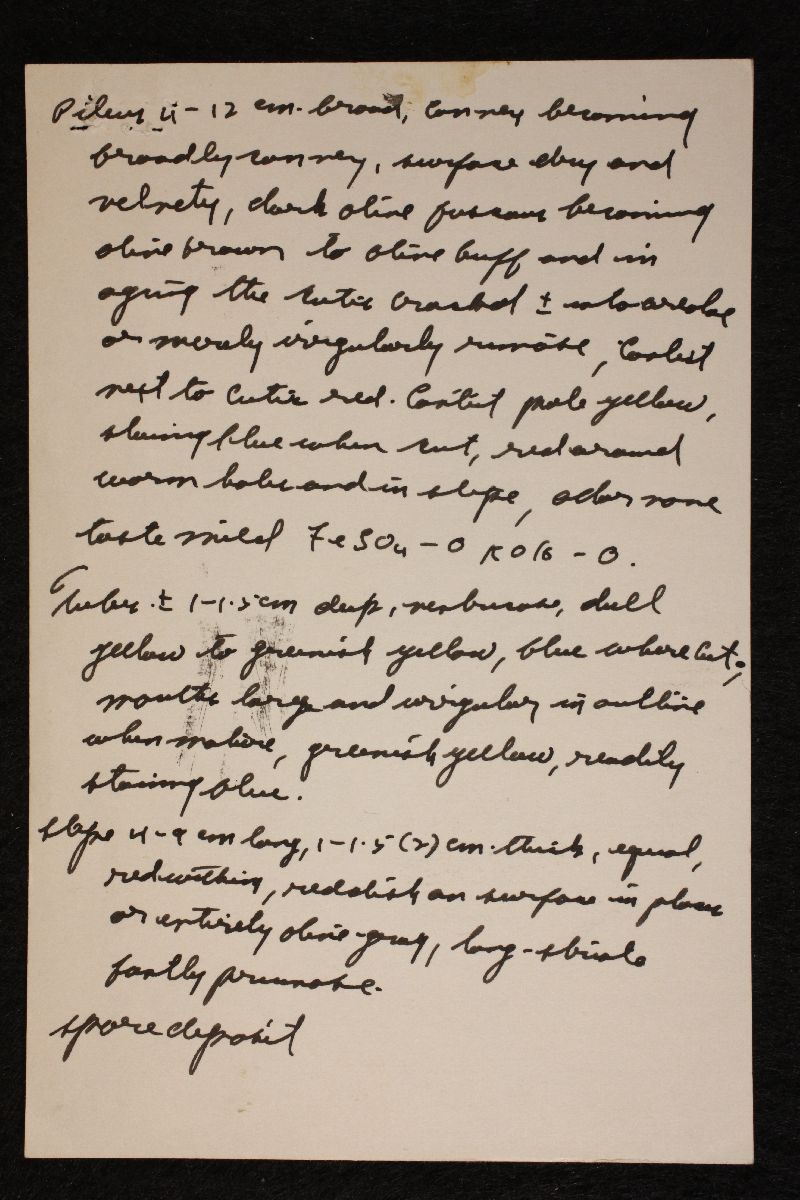 Pileus 4-12 cm. broad, convex becoming
broadly convex, surface dry and
velvety, dark olive fuscous becoming
olive brown to olive buff and in
aging the cutis cracked ± into areolae
or merely irregularly rimose, Context
next to cutis red. Context pale yellow,
staining blue when cut, red around
worm holes and in stipe, odor none
taste mild FeSO4 - 0 KOH - 0.
Tubes ± 1-1.5 cm deep, dull
yellow to greenish yellow, blue where cut;
mouths large and irregular in outline
when mature, greenish yellow, readily
staining blue.
stipe 4-9 cm long, 1-1.5 (2) cm. thick, equal,
red within, reddish on surface in places
or entirely olive-gray, long-striate
faintly pruinose.
spore deposit